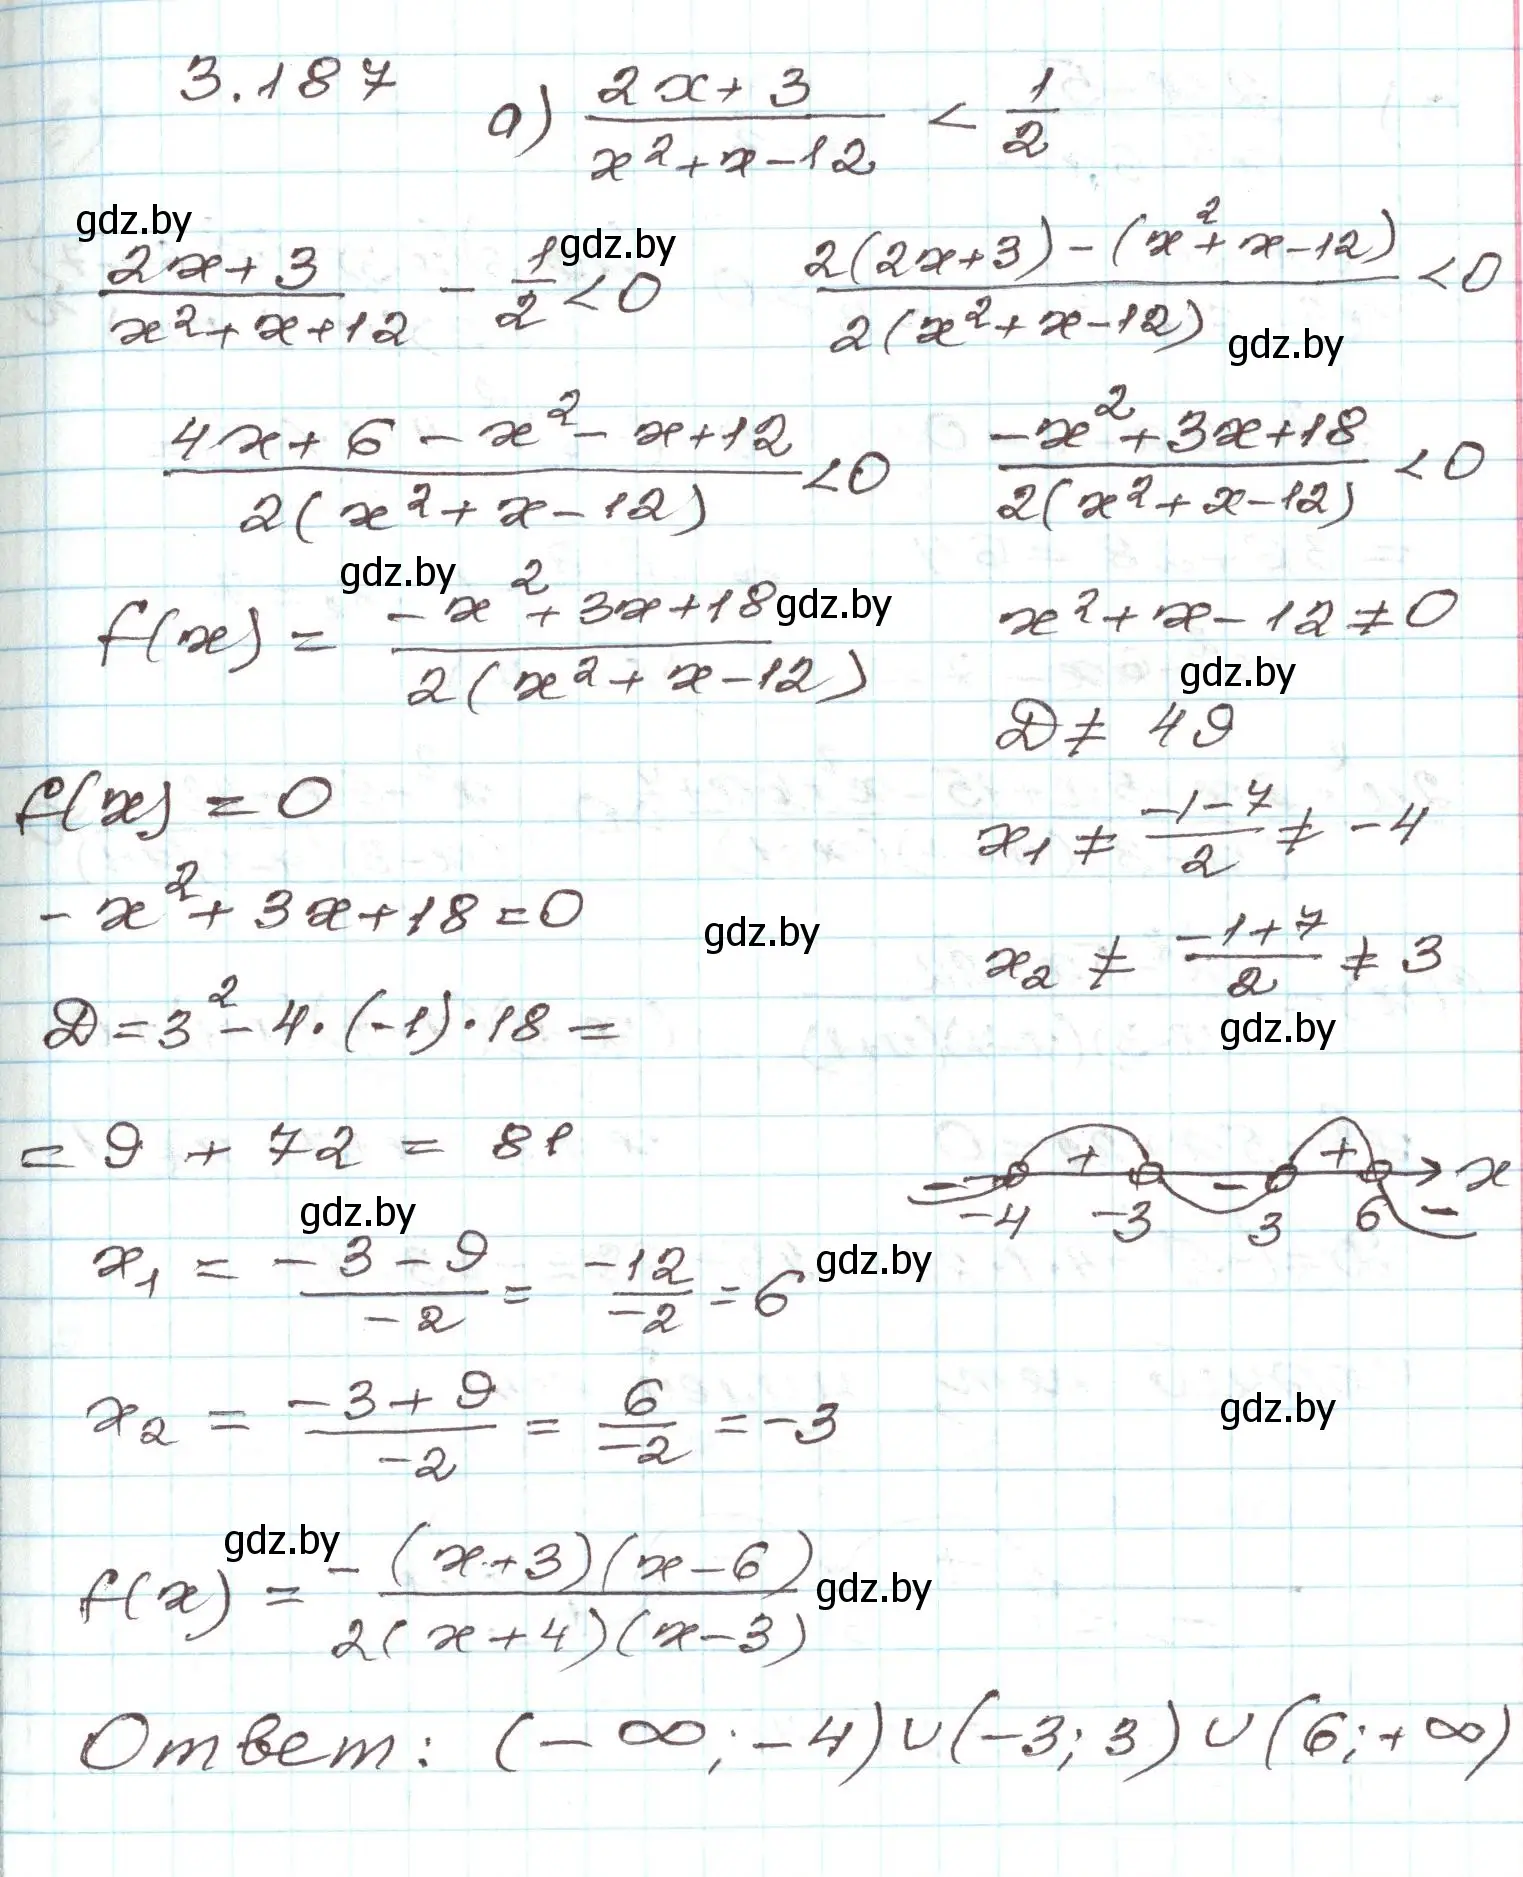 3.187 а) (2x+3)/(x²+x-12) < 1/2
gdz.by gdz.by
(2x+3)/(x²+x+12) - 1/2 < 0 (2(2x+3)-(x²+x-12))/(2(x²+x-12)) < 0
gdz.by
(4x+6-x²-x+12)/(2(x²+x-12)) < 0 (-x²+3x+18)/(2(x²+x-12)) < 0
gdz.by gdz.by
f(x) = (-x²+3x+18)/(2(x²+x-12)) x²+x-12≠0
gdz.by
D ≠ 49
f(x) = 0 x₁ ≠ (-1-7)/2 ≠ -4
-x²+3x+18=0
gdz.by
x₂ ≠ (-1+7)/2 ≠ 3
D=3²-4·(-1)·18=
gdz.by
= 9 + 72 = 81
- + - + - x
-4 -3 3 6
gdz.by
x₁ = (-3-9)/-2 = -12/-2 = 6
gdz.by
x₂ = (-3+9)/-2 = 6/-2 = -3
gdz.by
gdz.by
f(x) = -((x+3)(x-6))/(2(x+4)(x-3))
gdz.by
Ответ: (-∞; -4)∪(-3; 3)∪(6; +∞)